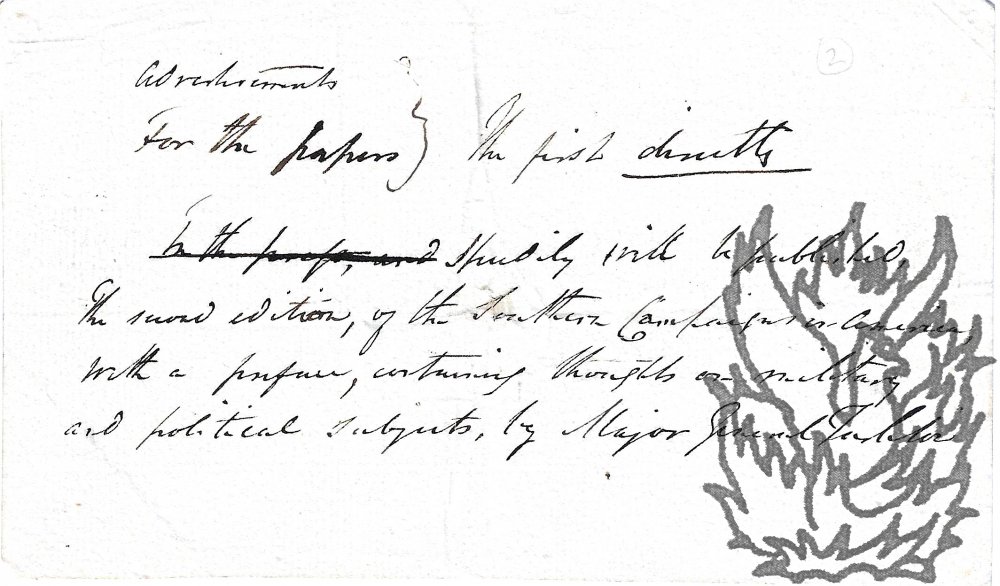 2
Advertisements
For the papers } The first directly
In the press, and Speedily will be published,
The second edition, of the Southern Campaigns in America,
With a preface, containing thoughts on military
and political subjects, by Major General Tarleton